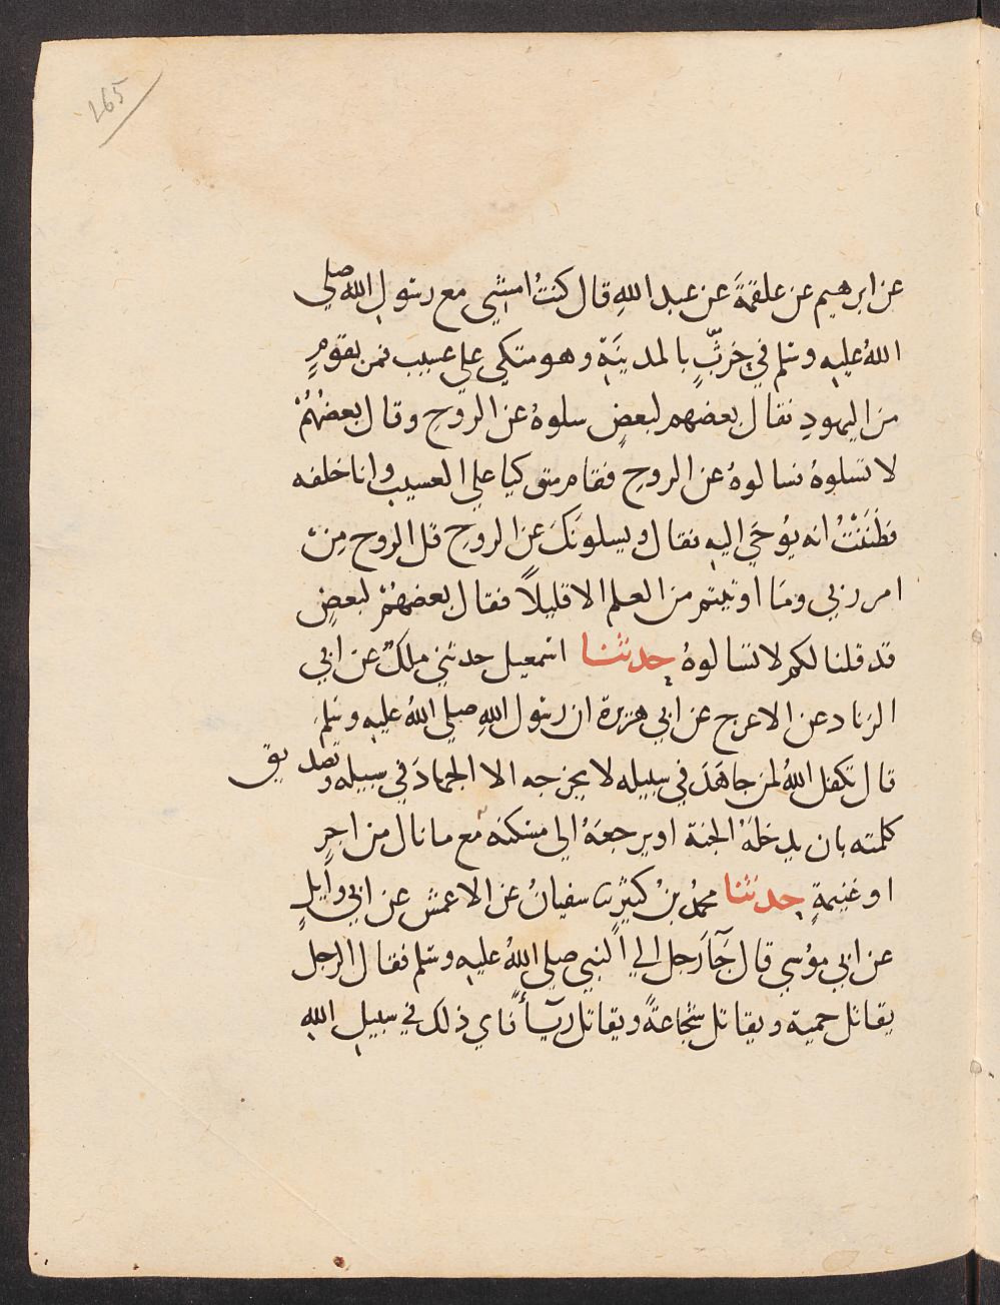 265
عن ابرهيم عن علقمةَ عن عبد اللهِ قال كنتُ امشي مع رسول الله صلي
اللهُ عليهِ وسلم في خربٍ بالمدينَةِ وهو متكي علي عسيب فمن بقومٍ
منَ اليهودِ فقال بعضهم لبعضٍ سلوهُ عن الروحِ وقال بعضُهُمْ
لا تسلوهُ فسالوهُ عن الروحِ فقام متوكيا علي العسيب وانا خلفه
فظَنَنْتُ انه يُوحَي اليهِ فقال ويسلونَكَ عن الروحِ قل الروح مِن
امر ربي ومَا اوتيتم من العلم الا قليلاً فقال بعضهُمْ لبعضٍ
قد قلنا لكم لا تسالوهُ حدثنا اسمعيل حدثني ملكٌ عن ابي
الزناد عن الاعرج عن ابي هريرة ان رسول اللهِ صلي اللهُ عليهِ وسلمَ
قال تكفل اللهُ لمن جاهَدَ في سبيله لا يخرجه الا الجهادَ في سبيله وتصديق
كلمته بان يدخلَهُ الجنة او يرجعَهُ الي مسكنه مع ما نال من اجرٍ
او غنيمةٍ حدثنا محمدُ بنُ كثيرٍ ثنا سفيانُ عن الاعمش عن ابي وايلٍ
عن ابي موُسي قال جَآ رجل الي النبي صلي اللهُ عليهِ وسلم فقال الرجل
يقاتل حمية ويقاتل شجاعةً ويقاتل ريآءً فاي ذلك في سبيلِ اللهِ